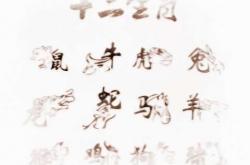 十二生肖
鼠 牛 虎 兔
蛇 马 羊
鸡 狗